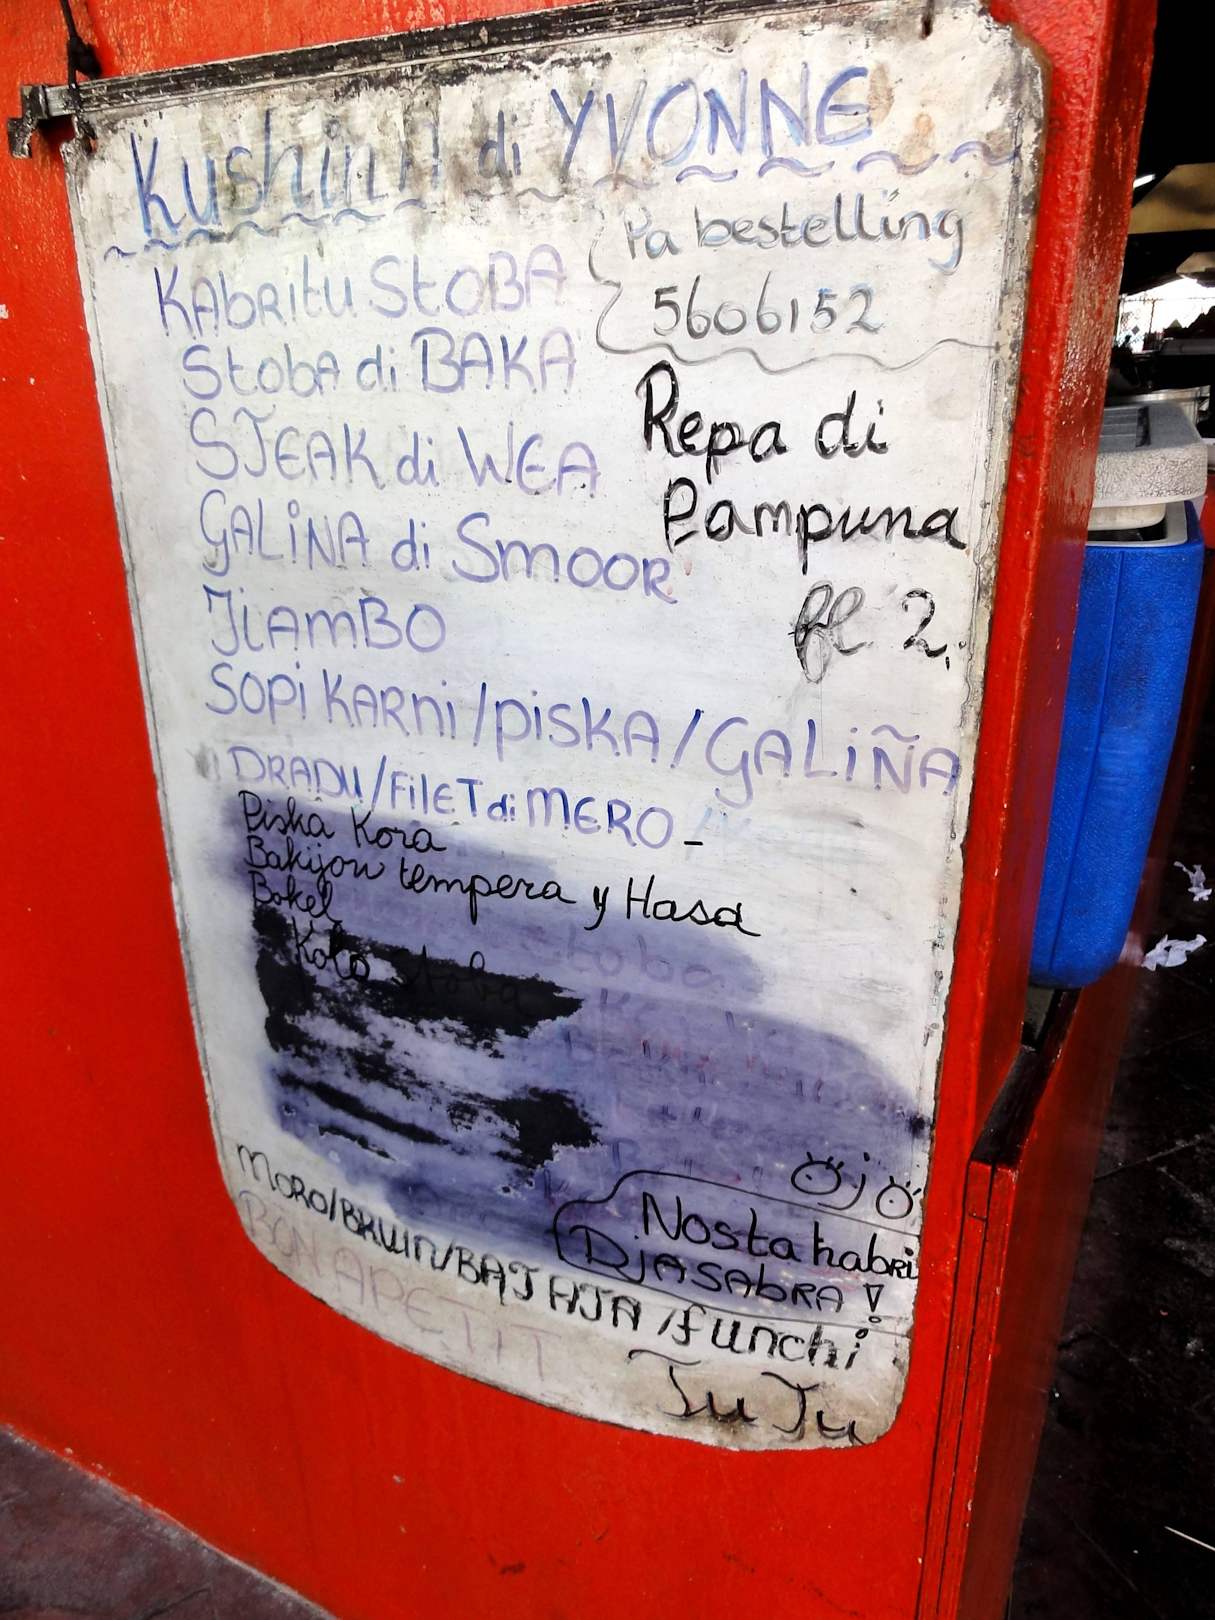 Kushina di YVONNE
Pa bestelling
5606152
KAbRitu StOBA
StobA di BAKA
STEAK di WEA
GALiNA di SmOOR
JiAmBO
SOPi KARni/PiSKA/GALiÑA
DRADU/FiLET di MERO -
Piska Kora
Bakijou tempera y Hasa
Bokel
Kolo stoba
Repa di
Pampuna
fl 2,
Ojo
Nosta habri
DjASAbRA !
MORO/BRUin/BATATA/funchi
BON APETIT
TuTu